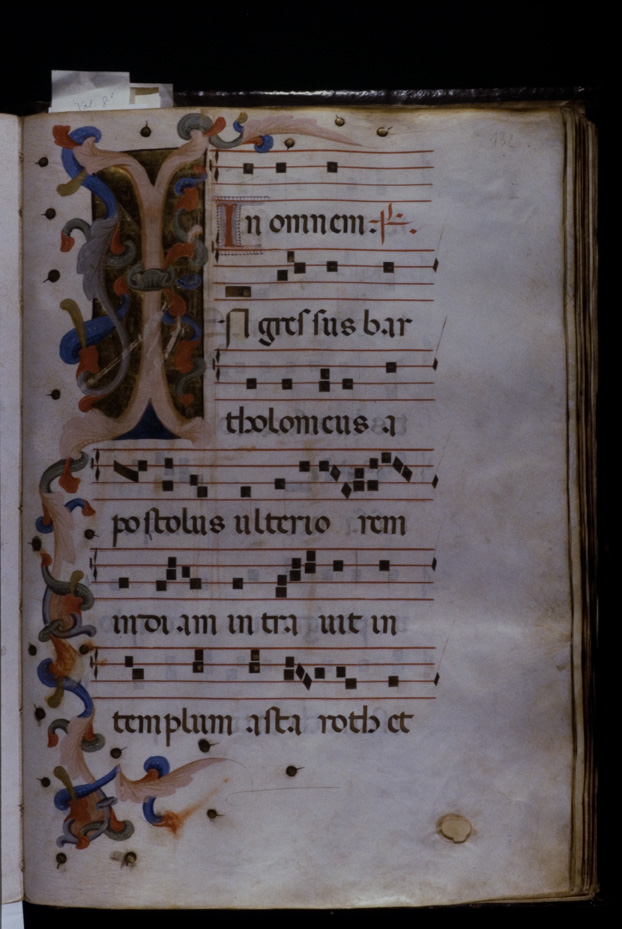 132
In omnem. ps.
IN gressus bar
tholomeus a
postolus ulterio rem
indi am in tra uit in
templum asta roth et